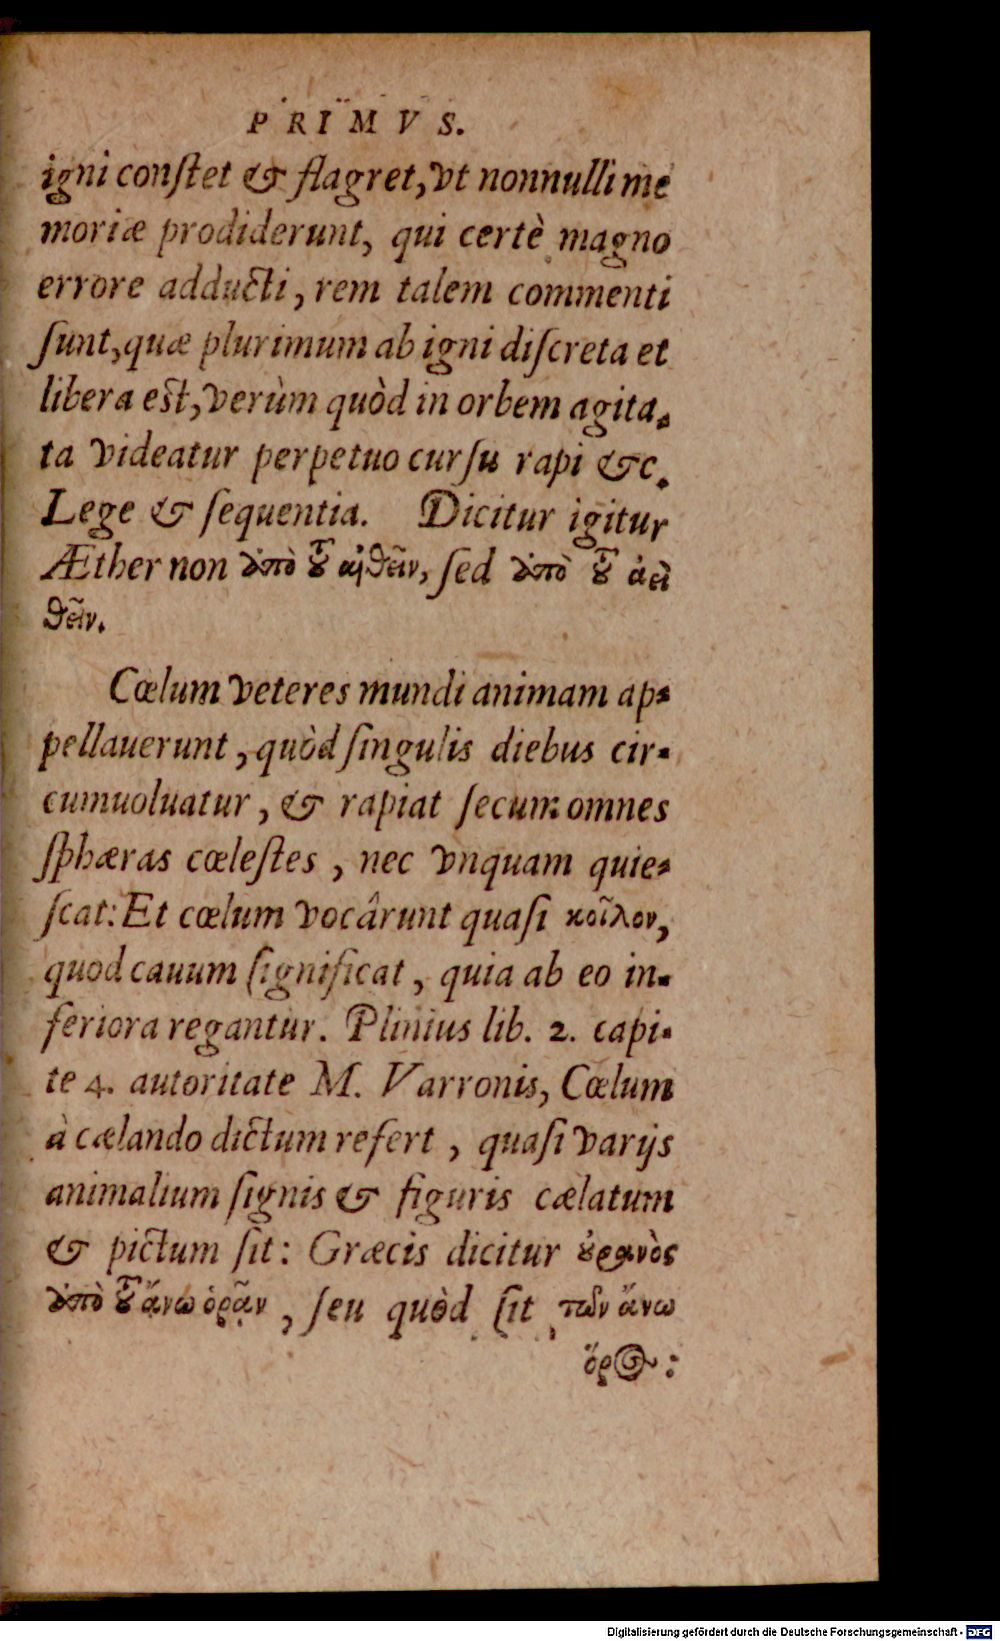 PRIMVS.
igni conſtet & flagret, vt nonnulli me
moriæ prodiderunt, qui certè magno
errore adducti, rem talem commenti
ſunt, quæ plurimum ab igni diſcreta et
libera eſt, verùm quòd in orbem agita-
ta videatur perpetuo curſu rapi &c.
Lege & ſequentia. Dicitur igitur
Æther non ἀπὸ τοῦ αἰθεῖν, ſed ἀπὸ τοῦ ἀεὶ
θεῖν.
Cœlum veteres mundi animam ap-
pellauerunt, quòd ſingulis diebus cir-
cumuoluatur, & rapiat ſecum omnes
ſphæras cœleſtes, nec vnquam quie-
ſcat: Et cœlum vocârunt quaſi κοῖλον,
quod cauum ſignificat, quia ab eo in-
feriora regantur. Plinius lib. 2. capi-
te 4. autoritate M. Varronis, Cœlum
à cælando dictum refert, quaſi varijs
animalium ſignis & figuris cælatum
& pictum ſit: Græcis dicitur οὐρανὸς
ἀπὸ τοῦ ἄνω ὁρᾷν, ſeu quòd ſit τῶν ἄνω
ὅρος:
Digitalisierung gefördert durch die Deutsche Forschungsgemeinschaft - DFG